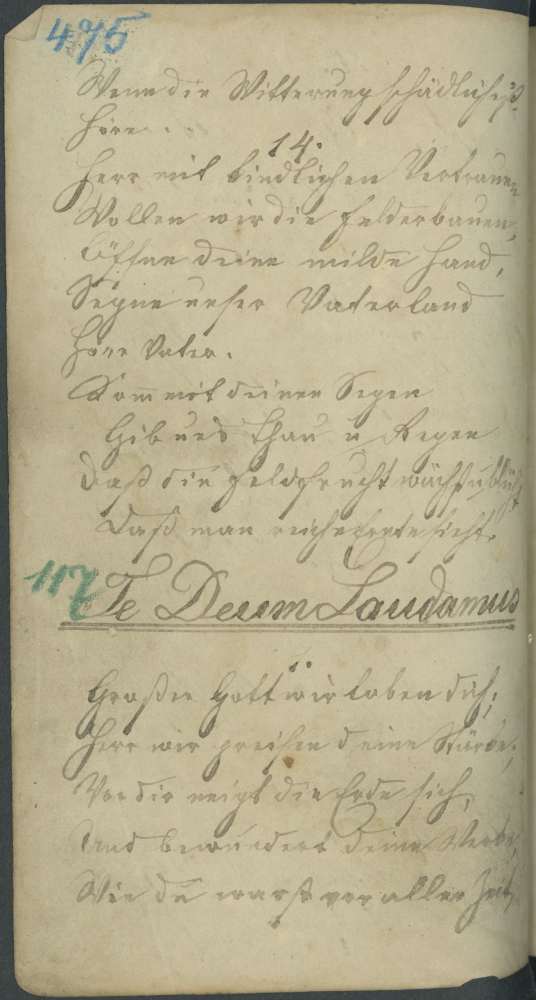 495
Wenn die Witterung schädlich ist
Höre . .
14.
Herr mit kindlichen Vertrauen
Wollen wir die Felder bauen,
Öffne deine milde Hand,
Segne unser Vaterland
Höre Vater.
Kom̅ mit deinen Segen
Gib uns Thau u Regen
Daß die Feldfrucht wächst u blüht
Daß man reiche Ernte sieht.
117 Te Deum Laudamus
Großer Gott wir loben dich,
Herr wir preisen deine Stärke,
Vor dir neigt die Erde sich,
Und bewundert deine Werke,
Wie du warst vor aller Zeit,